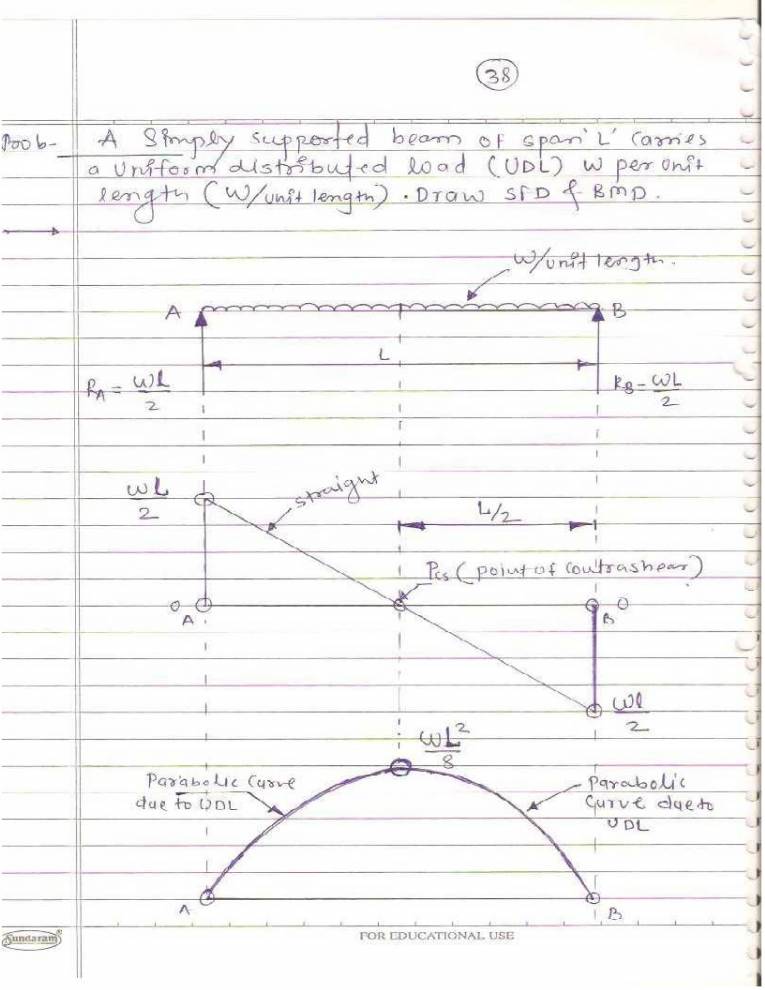 38
Prob- A Simply supported beam of span 'L' carries
a Uniform distributed load (UDL) W per unit
length (W/unit length). Draw SFD & BMD.
W/unit length.
A
B
L
RA = WL/2
RB = WL/2
WL/2
straight
L/2
Pcs (point of contrashear)
0
A
B
0
Wl/2
WL²/8
Parabolic Curve
due to UDL
Parabolic
Curve due to
UDL
A
B
Sundaram®
FOR EDUCATIONAL USE